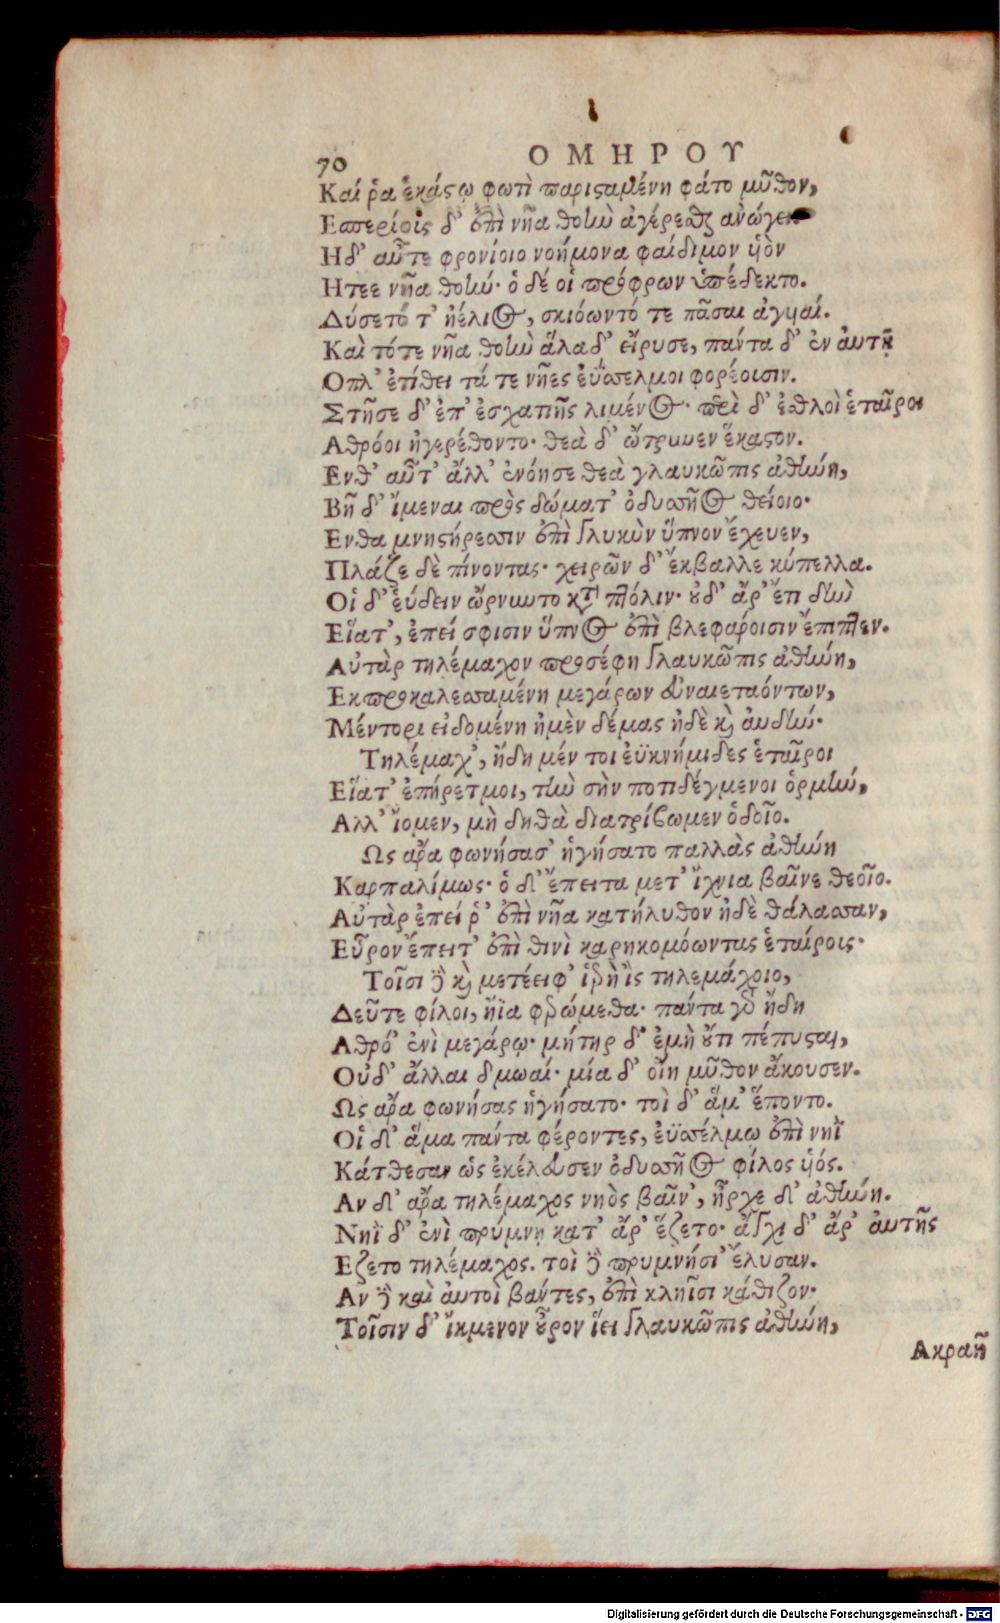 70 ΟΜΗΡΟΥ
Καί ῥα ἑκάςῳ φωτὶ παριςαμένη φάτο μῦθον,
Εσπερίοις δ' ἐπὶ νῆα θοὴν ἀγέρεσθαι ἀνώγει
Ηδ' αὖτε φρονίοιο νοήμονα φαίδιμον υἱὸν
Ητεε νῆα θοήν· ὁ δέ οἱ πρόφρων ὑπέδεκτο.
Δύσετό τ' ἠέλιος, σκιόωντό τε πᾶσαι ἀγυιαί.
Καὶ τότε νῆα θοὴν ἅλα δ' εἴρυσε, πάντα δ' ἐν αὐτῇ
Οπλ' ἐτίθει τά τε νῆες ἐΰσσελμοι φορέοισιν.
Στῆσε δ' ἐπ' ἐσχατιῆς λιμένος· περὶ δ' ἐσθλοὶ ἑταῖροι
Αθρόοι ἠγερέθοντο· θεὰ δ' ὤτρυνεν ἕκαςον.
Ενθ' αὖτ' ἄλλ' ἐνόησε θεὰ γλαυκῶπις ἀθήνη,
Βῆ δ' ἴμεναι πρὸς δώματ' ὀδυσσῆος θείοιο·
Ενθα μνηςήρεσσιν ἐπὶ γλυκὺν ὕπνον ἔχευεν,
Πλάζε δὲ πίνοντας· χειρῶν δ' ἔκβαλλε κύπελλα.
Οἱ δ' εὕδειν ὤρνυντο κατὰ πτόλιν· οὐδ' ἄρ' ἔτι δὴν
Εἵατ', ἐπεί σφισιν ὕπνος ἐπὶ βλεφάροισιν ἔπιπτεν.
Αὐτὰρ τηλέμαχον προσέφη γλαυκῶπις ἀθήνη,
Εκπροκαλεσσαμένη μεγάρων εὐναιεταόντων,
Μέντορι εἰδομένη ἠμὲν δέμας ἠδὲ καὶ αὐδήν·
Τηλέμαχ', ἤδη μέν τοι ἐϋκνήμιδες ἑταῖροι
Εἵατ' ἐπήρετμοι, τὴν σὴν ποτιδέγμενοι ὁρμήν,
Αλλ' ἴομεν, μὴ δηθὰ διατρίβωμεν ὁδοῖο.
Ως ἄρα φωνήσασ' ἡγήσατο παλλὰς ἀθήνη
Καρπαλίμως· ὁ δ' ἔπειτα μετ' ἴχνια βαῖνε θεοῖο.
Αὐτὰρ ἐπεί ῥ' ἐπὶ νῆα κατήλυθον ἠδὲ θάλασσαν,
Εὗρον ἔπειτ' ἐπὶ θινὶ καρηκομόωντας ἑταίροις·
Τοῖσι δὲ καὶ μετέειφ' ἱερὴ ἲς τηλεμάχοιο,
Δεῦτε φίλοι, ἤϊα φερώμεθα· πάντα γὰρ ἤδη
Αθρό' ἐνὶ μεγάρῳ· μήτηρ δ' ἐμὴ οὔτι πέπυςαι,
Οὐδ' ἄλλαι δμωαί· μία δ' οἴη μῦθον ἄκουσεν.
Ως ἄρα φωνήσας ἡγήσατο· τοὶ δ' ἅμ' ἕποντο.
Οἱ δ' ἅμα πάντα φέροντες, ἐϋσσέλμῳ ἐπὶ νηῒ
Κάτθεσαν ὡς ἐκέλευσεν ὀδυσσῆος φίλος υἱός.
Αν δ' ἄρα τηλέμαχος νηὸς βαῖν', ἦρχε δ' ἀθήνη.
Νηῒ δ' ἐνὶ πρύμνῃ κατ' ἄρ' ἕζετο· ἄγχι δ' ἄρ' αὐτῆς
Εζετο τηλέμαχος. τοὶ δὲ πρυμνήσι' ἔλυσαν.
Αν δὲ καὶ αὐτοὶ βάντες, ἐπὶ κληῖσι κάθιζον·
Τοῖσιν δ' ἴκμενον οὖρον ἵει γλαυκῶπις ἀθήνη,
Ακραῆ
Digitalisierung gefördert durch die Deutsche Forschungsgemeinschaft - DFG